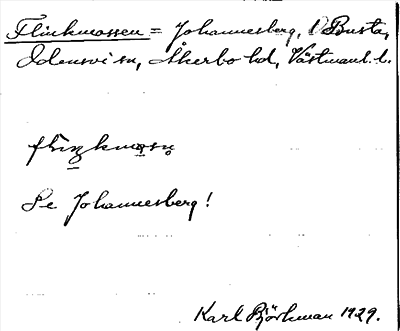 Flinkmossen = Johannesberg, Busta,
Odensvi sn, Åkerbo hd, Västmanl. l.
Se Johannesberg!
Karl Björkman 1929.